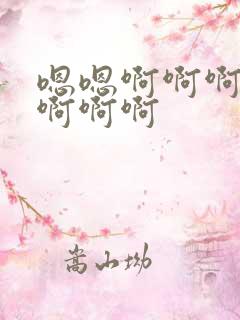 嗯嗯啊啊啊
啊啊啊
嵩山坳